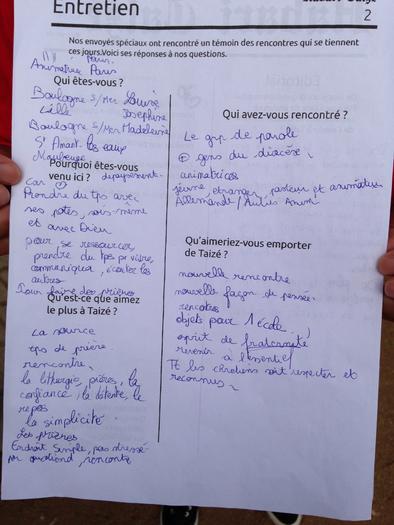 Entretien
2
Nos envoyés spéciaux ont rencontré un témoin des rencontres qui se tiennent
ces jours.Voici ses réponses à nos questions.
Paris.
Animatrice Paris
Qui êtes-vous ?
Boulogne s/Mer Louise
Lille Josephine
Boulogne s/Mer Madeleine
St Amant les eaux
Maubeuge
Pourquoi êtes-vous
venu ici ?
Car
Prendre du tps avec
ses potes, sous-même
et avec Dieu
pour se ressourcer
prendre du tps pr vivre,
communiquer, écouter les
autres
Pour faire des prières
Qu'est-ce que aimez
le plus à Taizé ?
La source
tps de prière
rencontre,
la lithurgie, prières, la
confiance, la détente, le
repos
la simplicité
Les prières
Endroit simple, pas stressé
rencontre
Qui avez-vous rencontré ?
Le grp de parole
⊕ gens du diocèse.
animatrices
jeune, etranger, pasteur et animateur
Allemande / Autres
Qu'aimeriez-vous emporter
de Taizé ?
nouvelle rencontre
nouvelle façon de pensée.
rencotres
objets pour 1 école.
esprit de fraternité
revenir à l'essentiel
Tt les chrétiens soit respecter et
reconnus.